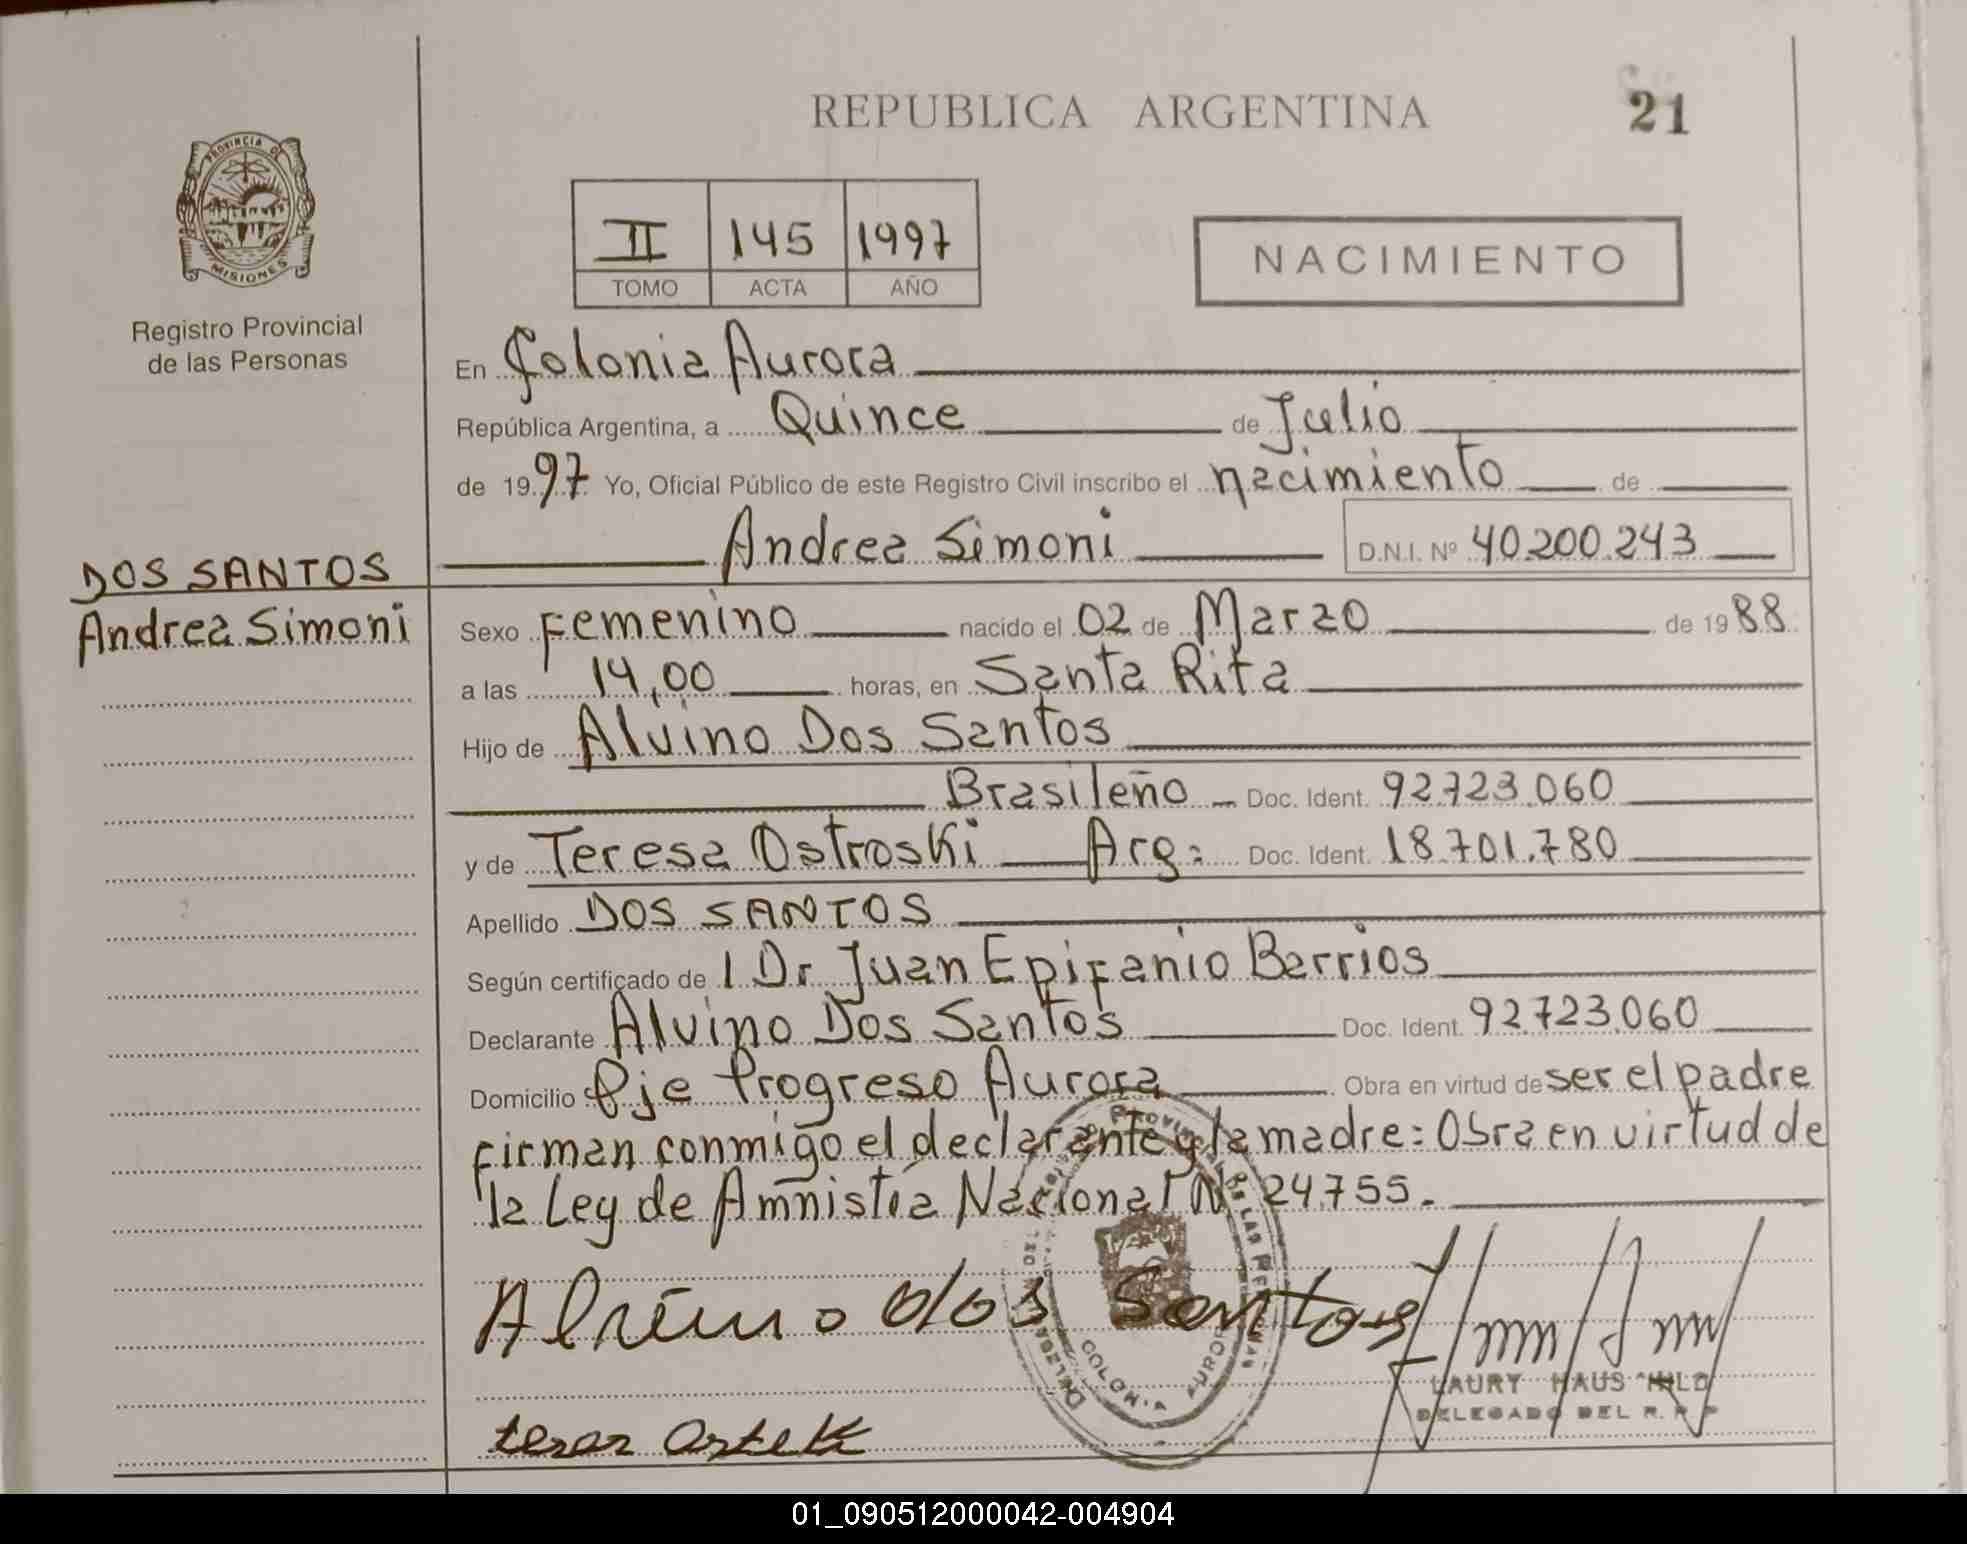 REPUBLICA ARGENTINA
21
PROVINCIA DE
MISIONES
Registro Provincial
de las Personas
II 145 1997
TOMO ACTA AÑO
NACIMIENTO
En Colonia Aurora
República Argentina, a Quince de Julio
de 1997 Yo, Oficial Público de este Registro Civil inscribo el nacimiento de
Andrea Simoni D.N.I. Nº 40.200.243
DOS SANTOS
Andrea Simoni
Sexo Femenino nacido el 02 de Marzo de 1988
a las 14,00 horas, en Santa Rita
Hijo de Alvino Dos Santos
Brasileño Doc. Ident. 92.723.060
y de Teresa Ostroski Arg: Doc. Ident. 18.701.780
Apellido DOS SANTOS
Según certificado de l Dr Juan Epifanio Barrios
Declarante Alvino Dos Santos Doc. Ident. 92.723.060
Domicilio Pje Progreso Aurora Obra en virtud de ser el padre
firman conmigo el declarante y la madre: Obra en virtud de
la Ley de Amnistía Nacional Nº 24.755.
dos Santos
LAURY HAUS HILD
DELEGADO DEL R. P. P
COLONIA AUROR
01_090512000042-004904